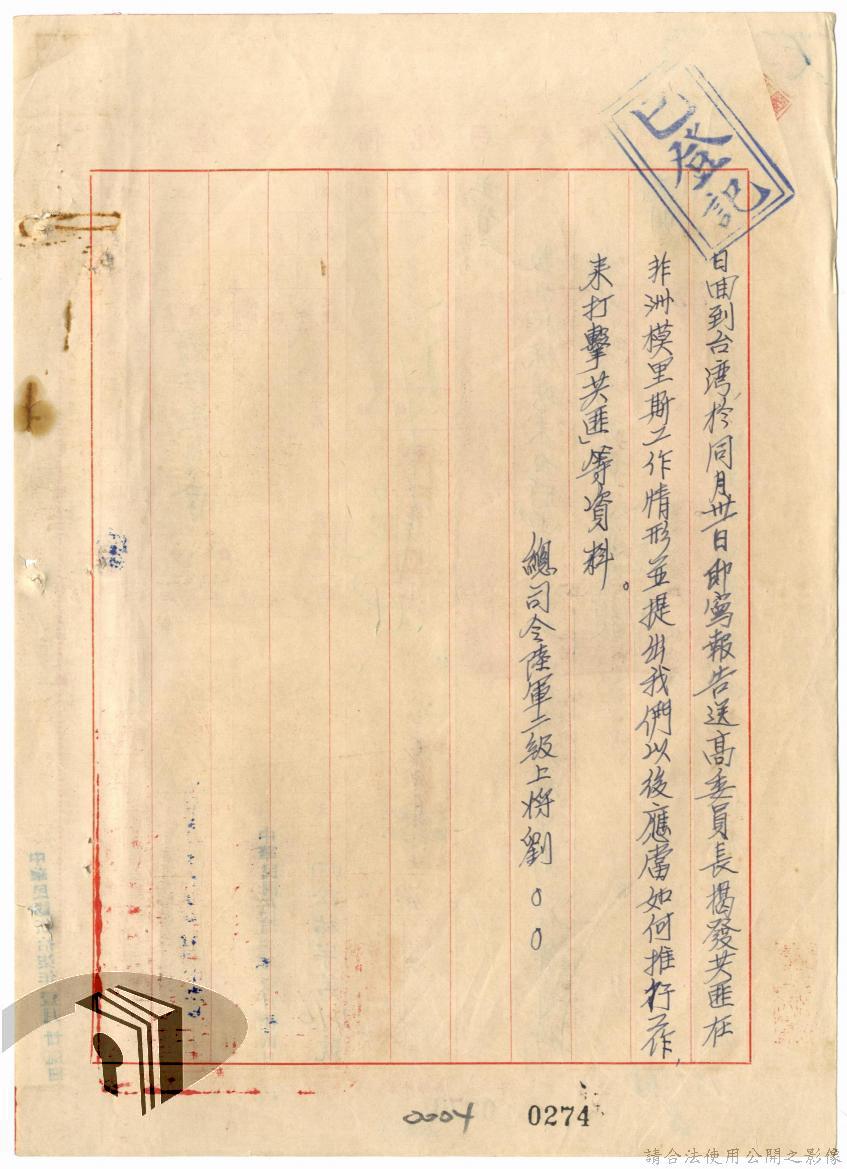 已登記
日回到台湾於同月卅一日即寫報告送高委員長揭發共匪在
非洲模里斯工作情形並提出我們以後應當如何推行工作,
来打擊共匪」等資料。
總司令陸軍二級上將劉○○
0004
0274
請合法使用公開之影像